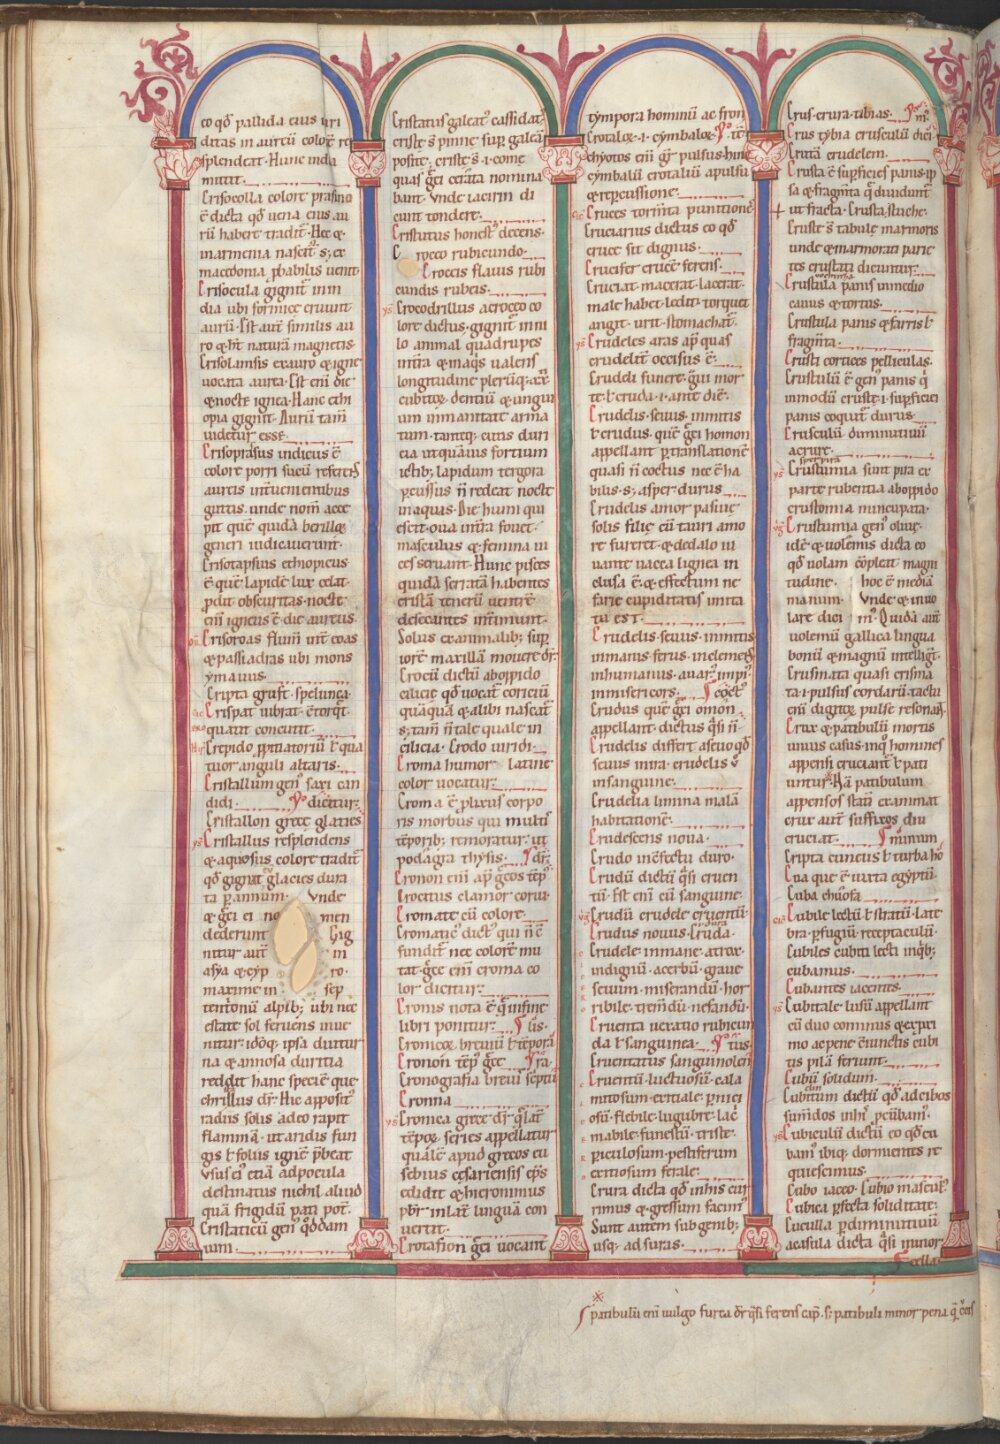 eo qđ pallida eius uiri
ditas in aureū colorē re
splendeat. Hunc india
mittit.
Crisocolla colore prasino
ē dicta qđ uena eius au
rū habere tradit̄. Hec &
in armenia nascit̄. s; ex
macedonia p̄babilis uenit
Crisocula gignit̄ in in
dia ubi formice eruunt
aurū. Est aut̄ similis au
ro & h̄t naturā magnetis.
Crisolansis ex auro & igne
uocata aurea. Est eni die
& nocte ignea. Hanc ethi
opia gignit. Aurū tam̄
uidetur esse.
Crisoprasus indicus ē
colore porri sucū referens
aureis int̄uenientibus
guttis. unde nom̄ acce
pit quē quidā berilloꝝ
generi iudicauerunt.
Crisotapsius ethiopicus
ē quē lapidē lux celat.
ꝓdit obscuritas. nocte
eni igneus ē. die aureus.
Crisoroas flum̄ int̄ coas
& passiadras ubi mons
ymauus.
Cripta gruft. spelunca.
Crispat uibrat. ċtorq̄t.
quatit concutit.
Crepido ꝓpitiatoriū ł qua
tuor anguli altaris.
Cristallum gen̄ saxi can
didi. dicitur:
Cristallon grece glacies
Cristallus resplendens
& aquosus colore. tradit̄
qđ gignat̄ glacies dura
ta p̄ annum. Vnde
& ḡci ei no men
dederunt Gig
nitur aut̄ in
asya & cyp ro.
maxime in sep
tentrionū alpib; ubi nec
estate sol feruens inue
nitur. ideoq; ipsa diutur
na & annosa duritia
reddit hanc speciē que
christallus dr̄. Hic apposit̄
radiis solis adeo rapit
flammā. ut aridis fun
gis ł foliis ignē p̄beat
Vsus ei etiā ad pocula
destinatus nichil aliud
quā frigidū pati pot̄.
Cristaticū gen̄ qđdam
uini.
Cristatus galeat̄. cassidat̄
criste s̄ pinne sup̄ galeā
posite. criste s̄. i. come
quas ḡci cerata nomina
bant. Vnde iacirin di
cunt tondere.
Cristutus honest̄. decens.
C roceo rubicundo.
Croceis flauus rubi
cundis rubeis.
Crocodrillus a croceo co
lore dictus. gignit̄ in ni
lo animal quadrupes
in t̄ra & in aq̄s ualens
longitudine plerūq; xx
cubitoꝝ. dentiū & ungui
um inmanitate arma
tum. tantaq; cutis duri
cia ut quāuis fortium
ictib; lapidum tergora
ꝑcussus n̄ redeat. nocte
in aquas. Die humi qui
escit. oua in t̄ra fouet.
masculus & femina ui
ces seruant. Hunc pisces
quidā serratā habentes
cristā tenerū uentrē
desecantes int̄imunt.
Solus ex animalib; sup̄
iorē maxillā mouere dr̄.
Crocū dictū ab oppido
cilicie qđ uocat̄ coriciū
quāquā & alibi nascat̄
s; tam̄ n̄ tale quale in
cilicia. Crodo uiridi.
Croma humor. latine
color uocatur:
Croma ē plurus corpo
ris morbus qui multi
tēporib; remoratur. ut
podagra thysis. dr̄:
Cronon eni ap̄ ḡcos tēp̄
Crocitus clamor corui.
Cromate cū colore.
Cromatic̄ dict̄ qui n̄ ċ
fundit̄ nec colorē mu
tat. ḡce eni croma co
lor dicitur:
Cronis nota ē q̄ in fine
libri ponitur:
Cronicoꝝ breuiū ł tēporā
Cronon tēp̄ ḡce.
Cronografia breui scriptū
Cronna
Cronica grece dr̄. q̄ lat̄
tēpoꝝ series appellatur
qualē apud grecos eu
sebius cesariensis ep̄s
edidit. & hieronimus
pb̄r in lat̄ linguā con
uertit.
Crotafion ḡci uocant
tympora hominū ac fron
Crotaloꝝ. i. cymbaloꝝ.
chyotos eni ḡr pulsus. hinc
cymbali crotaliū a pulsu
& repercussione.
Cruces torm̄ta punitione
Cruciarius dictus eo qđ
cruce sit dignus.
Crucifer crucē ferens.
Cruciat macerat. lacerat.
male habet. ledit. torquet
angit. urit. stomachat̄.
Crudeles aras ap̄ quas
crudelit̄ occisus ē.
Crudeli funere. q̄ui mor
te. ł cruda. i. ante diē.
Crudelis. seuus. inmitis
ł crudus. quē ḡci homon
appellant ꝑ translationē
quasi n̄ coctus nec ē ha
bilis. s; asper. durus
Crudelis amor pasiue
solis filie cū tauri amo
re fureret. & dedalo iu
uante uacca lignea in
clusa ē. & effectum ne
farie cupiditatis imita
ta est.
Crudelis. seuus. inmitis
inmanis. ferus. inclemens
inhumanus. auar̄. impi
inmisericors. coct̄
Crudus quē ḡci omon
appellant. dictus q̄si n̄
Crudelis differt a seuo. qđ
seuus in ira. crudelis ū
in sanguine.
Crudelia limina malā
habitationē.
Crudescens noua.
Crudo in ċfectu duro.
Crudū dictū q̄si cruen
tū. Est eni cū sanguine.
Crudū crudele cruentū.
Crudus nouus. Cruda.
Crudele. inmane. atrox.
indignū. acerbū. graue
seuum. miserandū. hor
ribile. trem̄dū. nefandū.
Cruenta ueratio rubicun
da ł sanguinea. tus.
Cruentatus sanguinolen
Cruentū. luctuosū. cala
mitosum. exitiale. ꝑnici
osū. flebile. lugubre. lac̄
mabile. funestū. triste.
ꝑiculosum. pestiferum
exitiosum. ferale.
Crura dicta qđ in his cur
rimus & gressum facim̄.
Sunt autem sub genib;
usq; ad suras.
Crus. crura. tibias. m̄:
Crus tybia crusculū dici
Crutā crudelem.
Crusta ē sup̄ficies panis. ip
sa & fragm̄ta q̄ diuidunt̄
ut fracta. Crusta stuche.
Cruste s̄ tabule marmoris
unde & marmorati parie
tes crustati dicuntur.
Crustula panis in medio
cauus & tortus.
Crustula panis & farris ł
fragm̄ta.
Crusti cortices pelliculas.
Crustulū ē gen̄ panis q̄
in modū cruste. i. sup̄ficiei
panis coquit̄ durus.
Crusculū diminutiuū
a crure.
Crustumia sunt pira ex
parte rubentia ab oppido
crustomia nuncupata.
Crustumia gen̄ oliue.
idē & uolemis dicta eo
qđ uolam cōpleat magni
tudine. hoc ē mediā
manum. Vnde & inuo
lare dici m̄. Quidā aut̄
uolemū gallica lingua
bonū & magnū intelligt̄.
Crusmata quasi crisma
ta. i. pulsus cordarū. tactu
eni digitoꝝ pulse resonant̄.
Crux & patibulū mortis
unius casus. in q̄ homines
appensi cruciant̄ ł pati
untur. Nā patibulum
appensos statī examinat
crux aut̄ suffixos diu
cruciat. minum
Cripta cuneus ł turba ho
Cua que ē iuxta egyptū.
Cuba
Cubile lectū ł stratū. late
bra. ꝑfugiū. receptaculū.
Cubiles cubiti lecti in qb;
cubamus.
Cubantes iacentes.
Cubitale lusū appellant
cū duo cominus & exꝑi
mo ac pene ċiunctis cubi
tis pilā feriunt.
Cubū solidum.
Cubitum dictū qđ ad cibos
sum̄dos in hi cubam̄.
Cubiculū dictū eo qđ cu
bam̄ ibiq; dormientes re
quiescimus.
Cubo iaceo. Cubio mascut̄.
Cubica ꝑfecta soliditate.
Cuculla ꝑ diminutiuū
a casula dicta q̄si minor
cella.
patibulū eni uulgo furca dr̄ q̄si ferens cap̄. s; patibuli minor pena q̄ crucis